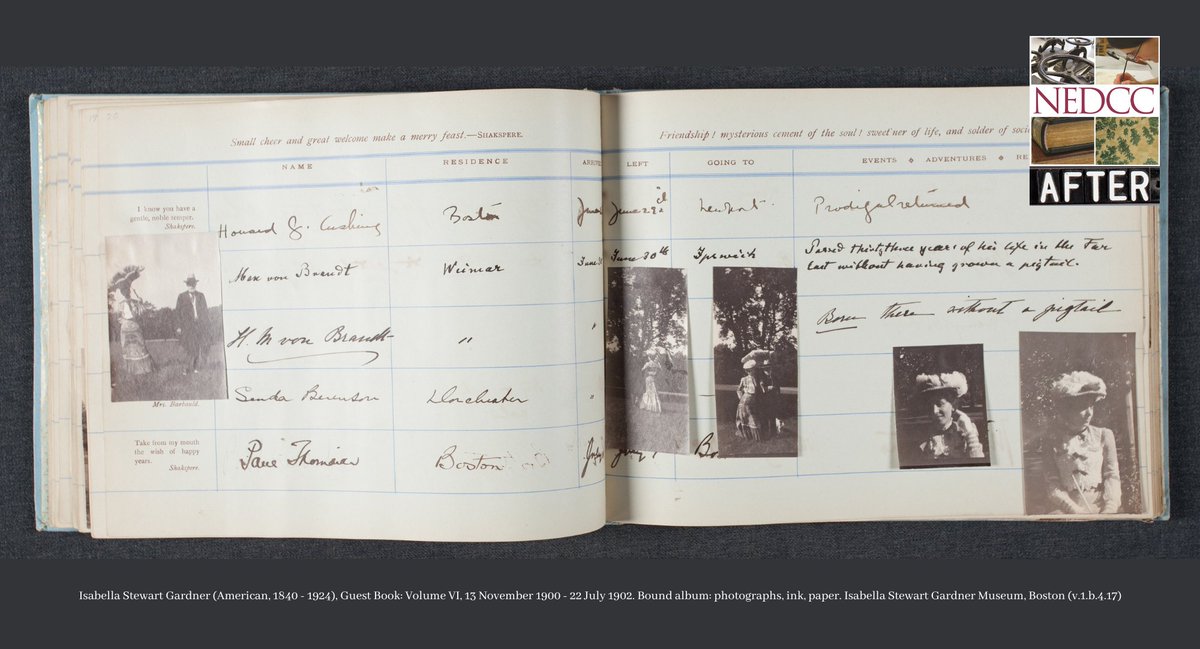 NEDCC
AFTER
Small cheer and great welcome make a merry feast.—SHAKSPERE.
NAME
RESIDENCE
I know you have a
gentle, noble temper.
Shakspere.
Howard G. Cushing
Boston
Max von Brandt
Wiemar
H. M von Brandt
"
Senda Berenson
Dorchester
"
Mrs. Barbauld.
Take from my mouth
the wish of happy
years.
Shakspere.
Boston
Friendship! mysterious cement of the soul! sweet'ner of life, and solder of
LEFT
GOING TO
EVENTS ◆ ADVENTURES ◆
Prodigal returned
June 30th
Ipswich
Passed thirty three years of his life in the Far
East without having grown a pigtail.
Born there without a pigtail
Isabella Stewart Gardner (American, 1840 - 1924), Guest Book: Volume VI, 13 November 1900 - 22 July 1902. Bound album: photographs, ink, paper. Isabella Stewart Gardner Museum, Boston (v.1.b.4.17)